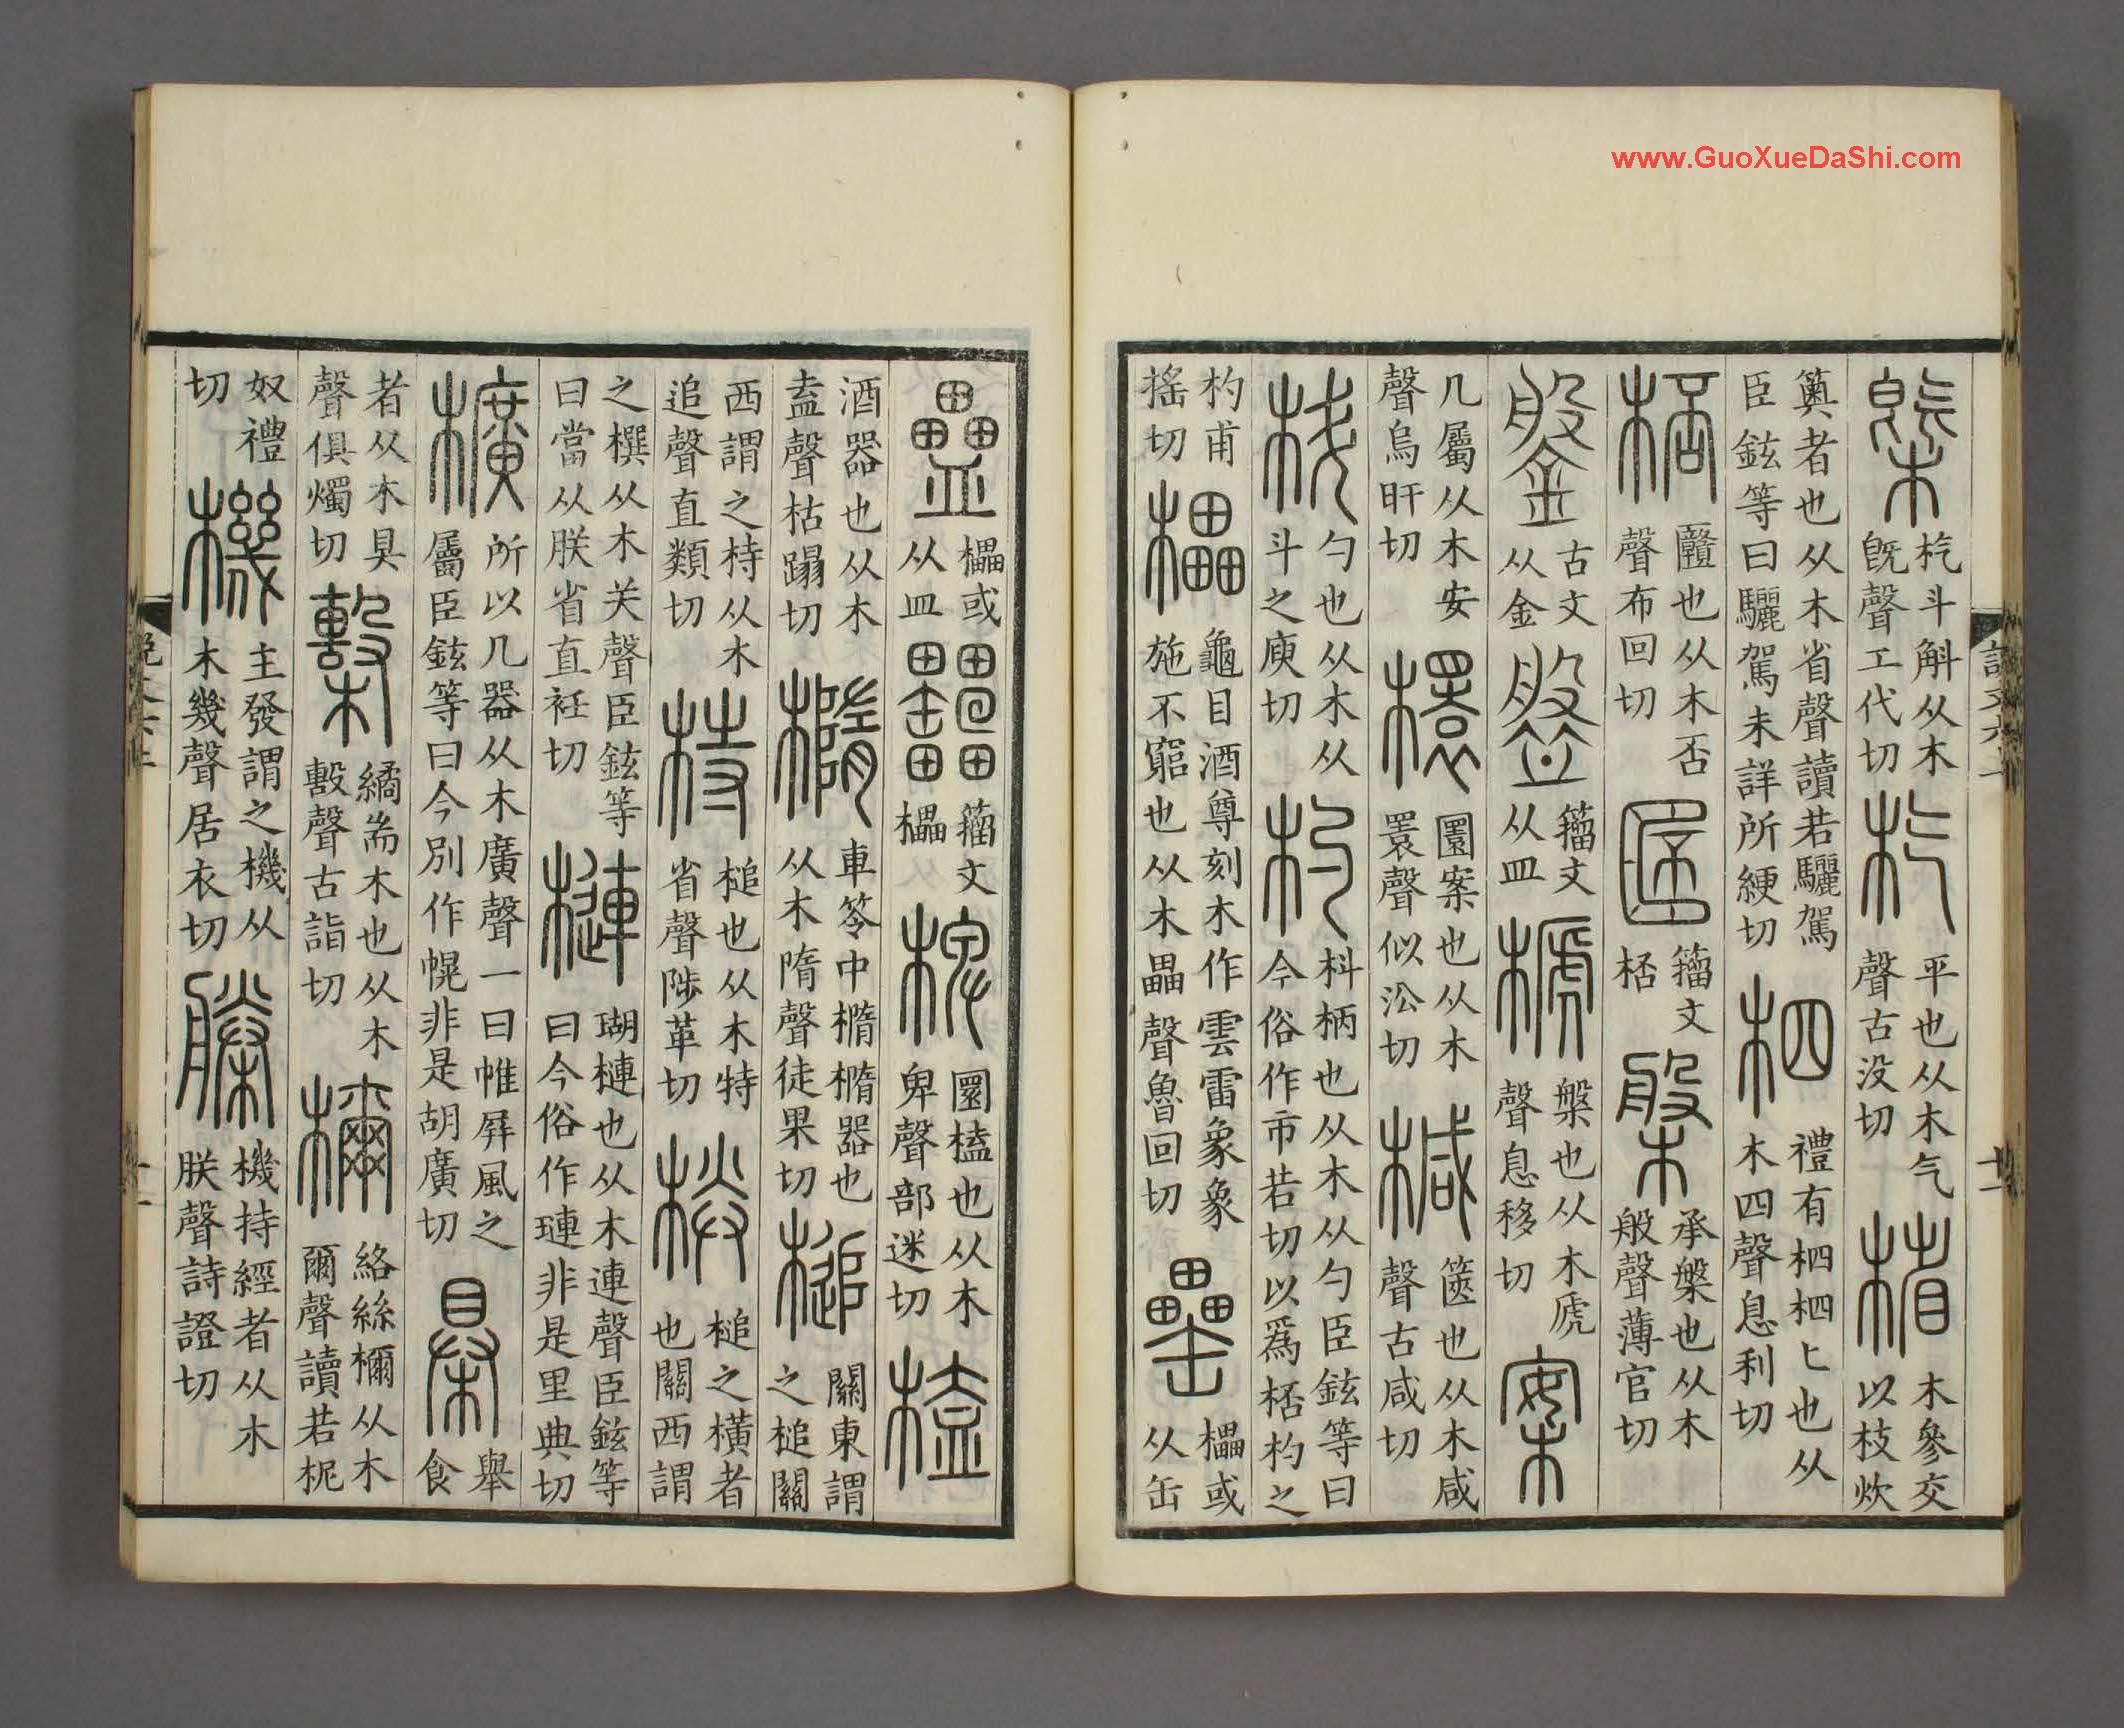 槩 杚斗斛从木旣聲工代切 杚 平也从木气聲古没切 楷 木參交以枝炊
䉛者也从木省聲讀若驪駕臣鉉等曰驪駕未詳所綆切 柶 禮有柶柶匕也从木四聲息利切
桮 㔶也从木否聲布回切 𠥏 籀文桮 槃 承槃也从木般聲薄官切
鎜 古文从金 盤 籀文从皿 榹 槃也从木虒聲息移切 案
几屬从木安聲烏旰切 檈 圜案也从木瞏聲似沿切 椷 篋也从木咸聲古咸切
枓 勺也从木从斗之庾切 杓 枓柄也从木从勺臣鉉等曰今俗作市若切以爲桮杓之
杓甫搖切 櫑 龜目酒尊刻木作雲雷象象施不窮也从木畾聲魯回切 罍 櫑或从缶
䀇 櫑或从皿 籀文櫑 椑 圜榼也从木卑聲部迷切 榼
酒器也从木盍聲枯蹋切 橢 車笭中橢橢器也从木隋聲徒果切 槌 關東謂之槌關
西謂之㭙从木追聲直類切 㭙 槌也从木特省聲陟革切 栚 槌之橫者也關西謂
之㯢从木灷聲臣鉉等曰當从朕省直衽切 槤 瑚槤也从木連聲臣鉉等曰今俗作璉非是里典切
櫎 所以几器从木廣聲一曰帷屏風之屬臣鉉等曰今別作幌非是胡廣切 梮 舉食
者从木具聲俱燭切 檕 繘耑木也从木毄聲古詣切 檷 絡絲檷从木爾聲讀若柅
奴禮切 機 主發謂之機从木幾聲居衣切 滕 機持經者从木朕聲詩證切
說文六上
十一
說文六上
十二
www.GuoXueDaShi.com